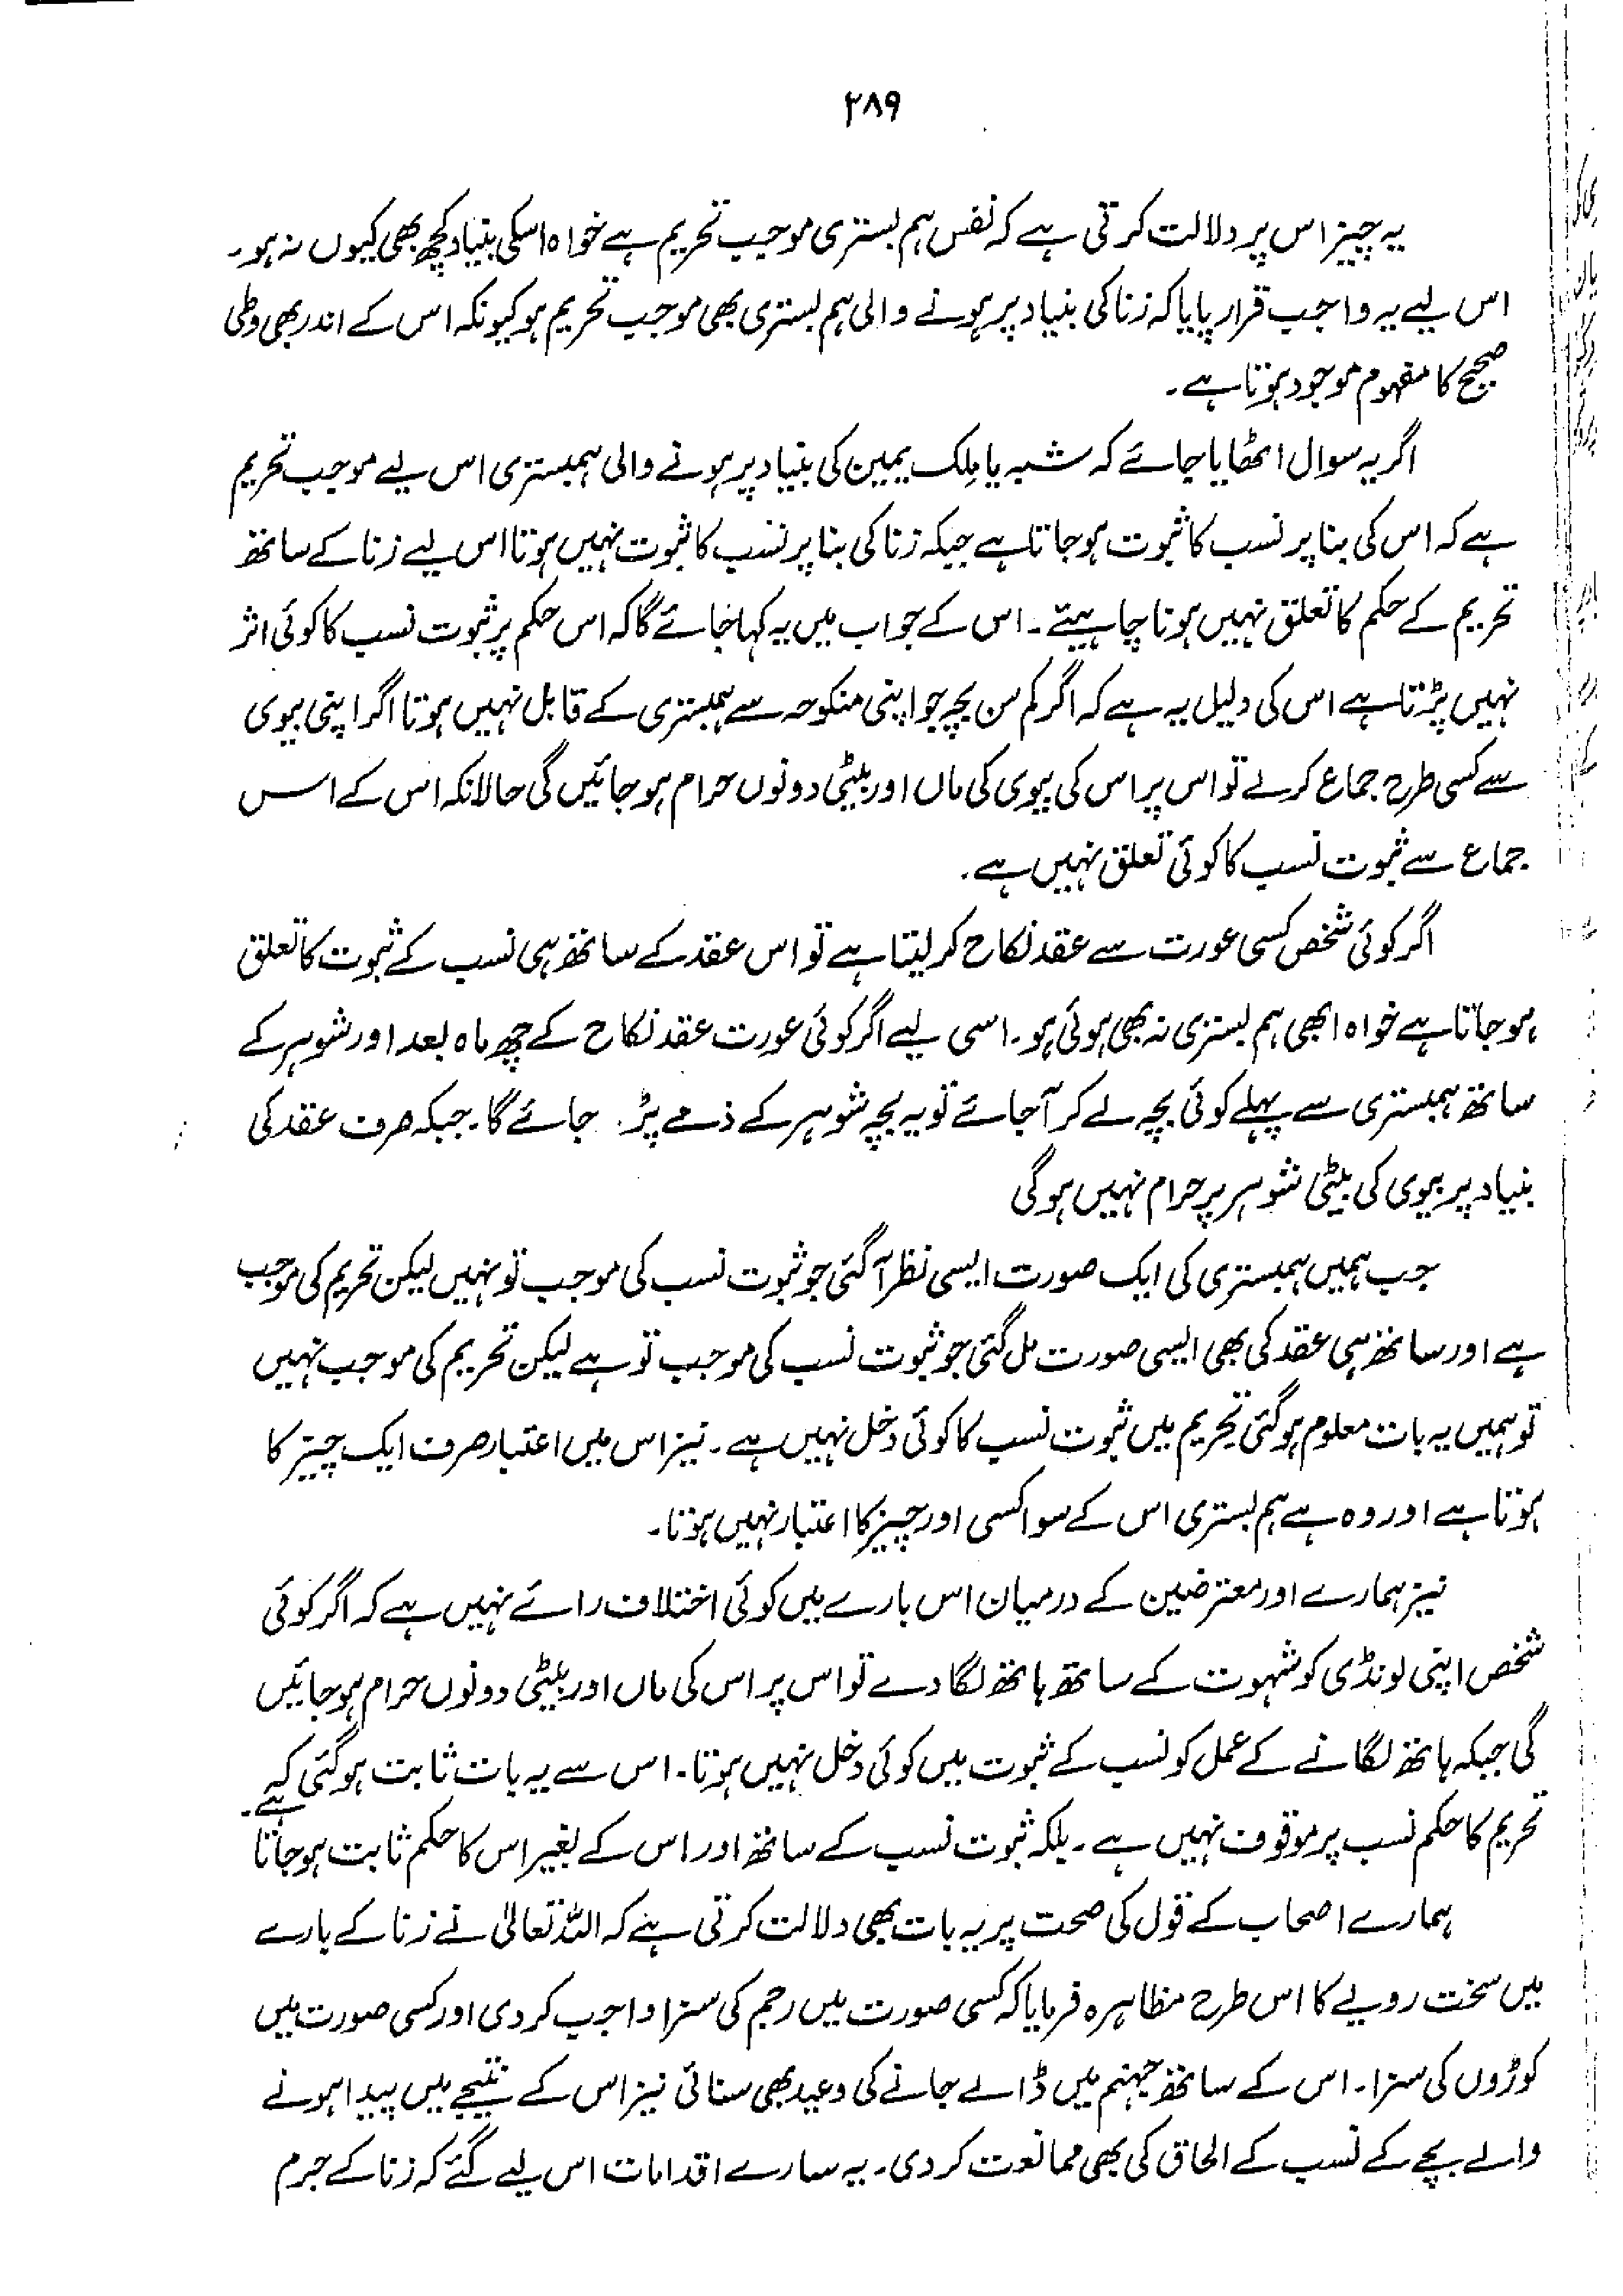 ۲۸۹
یہ چیز اس پر دلالت کرتی ہے کہ نفس ہم بستری موجب تحریم ہے خواہ اسکی بنیاد کچھ بھی کیوں نہ ہو۔
اس لیے یہ واجب قرار پایا کہ زنا کی بنیاد پر ہونے والی ہم بستری بھی موجب تحریم ہو کیونکہ اس کے اندر بھی وطی
صحیح کا مفہوم موجود ہوتا ہے۔
اگر یہ سوال اٹھایا جائے کہ شبہ یا مِلک یمین کی بنیاد پر ہونے والی ہمبستری اس لیے موجب تحریم
ہے کہ اس کی بنا پر نسب کا ثبوت ہو جاتا ہے جبکہ زنا کی بنا پر نسب کا ثبوت نہیں ہوتا اس لیے زنا کے ساتھ
تحریم کے حکم کا تعلق نہیں ہونا چاہیئے۔ اس کے جواب میں یہ کہا جائے گا کہ اس حکم پر ثبوت نسب کا کوئی اثر
نہیں پڑتا ہے اس کی دلیل یہ ہے کہ اگر کم سن بچہ جو اپنی منکوحہ سے ہمبستری کے قابل نہیں ہوتا اگر اپنی بیوی
سے کسی طرح جماع کر لے تو اس پر اس کی بیوی کی ماں اور بیٹی دونوں حرام ہو جائیں گی حالانکہ اس کے اس
جماع سے ثبوت نسب کا کوئی تعلق نہیں ہے۔
اگر کوئی شخص کسی عورت سے عقد نکاح کر لیتا ہے تو اس عقد کے ساتھ ہی نسب کے ثبوت کا تعلق
ہو جاتا ہے خواہ ابھی ہم بستری نہ بھی ہوئی ہو۔ اسی لیے اگر کوئی عورت عقد نکاح کے چھ ماہ بعد اور شوہر کے
ساتھ ہمبستری سے پہلے کوئی بچہ لے کر آ جائے تو یہ بچہ شوہر کے ذمے پڑ جائے گا۔ جبکہ صرف عقد کی
بنیاد پر بیوی کی بیٹی شوہر پر حرام نہیں ہوگی
جب ہمیں ہمبستری کی ایک صورت ایسی نظر آ گئی جو ثبوت نسب کی موجب تو نہیں لیکن تحریم کی موجب
ہے اور ساتھ ہی عقد کی بھی ایسی صورت مل گئی جو ثبوت نسب کی موجب تو ہے لیکن تحریم کی موجب نہیں
تو ہمیں یہ بات معلوم ہو گئی تحریم میں ثبوت نسب کا کوئی دخل نہیں ہے۔ نیز اس میں اعتبار صرف ایک چیز کا
ہوتا ہے اور وہ ہے ہم بستری اس کے سوا کسی اور چیز کا اعتبار نہیں ہوتا۔
نیز ہمارے اور معترضین کے درمیان اس بارے میں کوئی اختلاف رائے نہیں ہے کہ اگر کوئی
شخص اپنی لونڈی کو شہوت کے ساتھ ہاتھ لگا دے تو اس پر اس کی ماں اور بیٹی دونوں حرام ہو جائیں
گی جبکہ ہاتھ لگانے کے عمل کو نسب کے ثبوت میں کوئی دخل نہیں ہوتا۔ اس سے یہ بات ثابت ہو گئی کہ
تحریم کا حکم نسب پر موقوف نہیں ہے۔ بلکہ ثبوت نسب کے ساتھ اور اس کے بغیر اس کا حکم ثابت ہو جاتا ہے۔
ہمارے اصحاب کے قول کی صحت پر یہ بات بھی دلالت کرتی ہے کہ اللہ تعالیٰ نے زنا کے بارے
میں سخت رویے کا اس طرح مظاہرہ فرمایا کہ کسی صورت میں رجم کی سزا واجب کر دی اور کسی صورت میں
کوڑوں کی سزا۔ اس کے ساتھ جہنم میں ڈالے جانے کی وعید بھی سنائی نیز اس کے نتیجے میں پیدا ہونے
والے بچے کے نسب کے الحاق کی بھی ممانعت کر دی۔ یہ سارے اقدامات اس لیے کئے گئے کہ زنا کے جرم